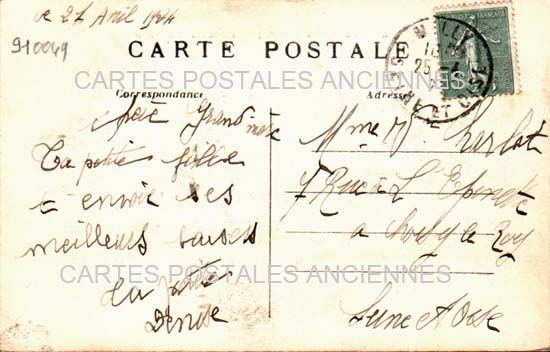 27 Avril
910049
CARTE POSTALE
CARTES POSTALES ANCIENNES
Correspondance
Adresse
MILLY
25
SEINE ET OISE
chère Grand mère
Ta petite fille
t envoie ses
meilleurs baisers
ta petite
Denise
Mme V Charlot
7 Rue à L'
a Choisy le Roy
Seine et Oise
CARTES POSTALES ANCIENNES